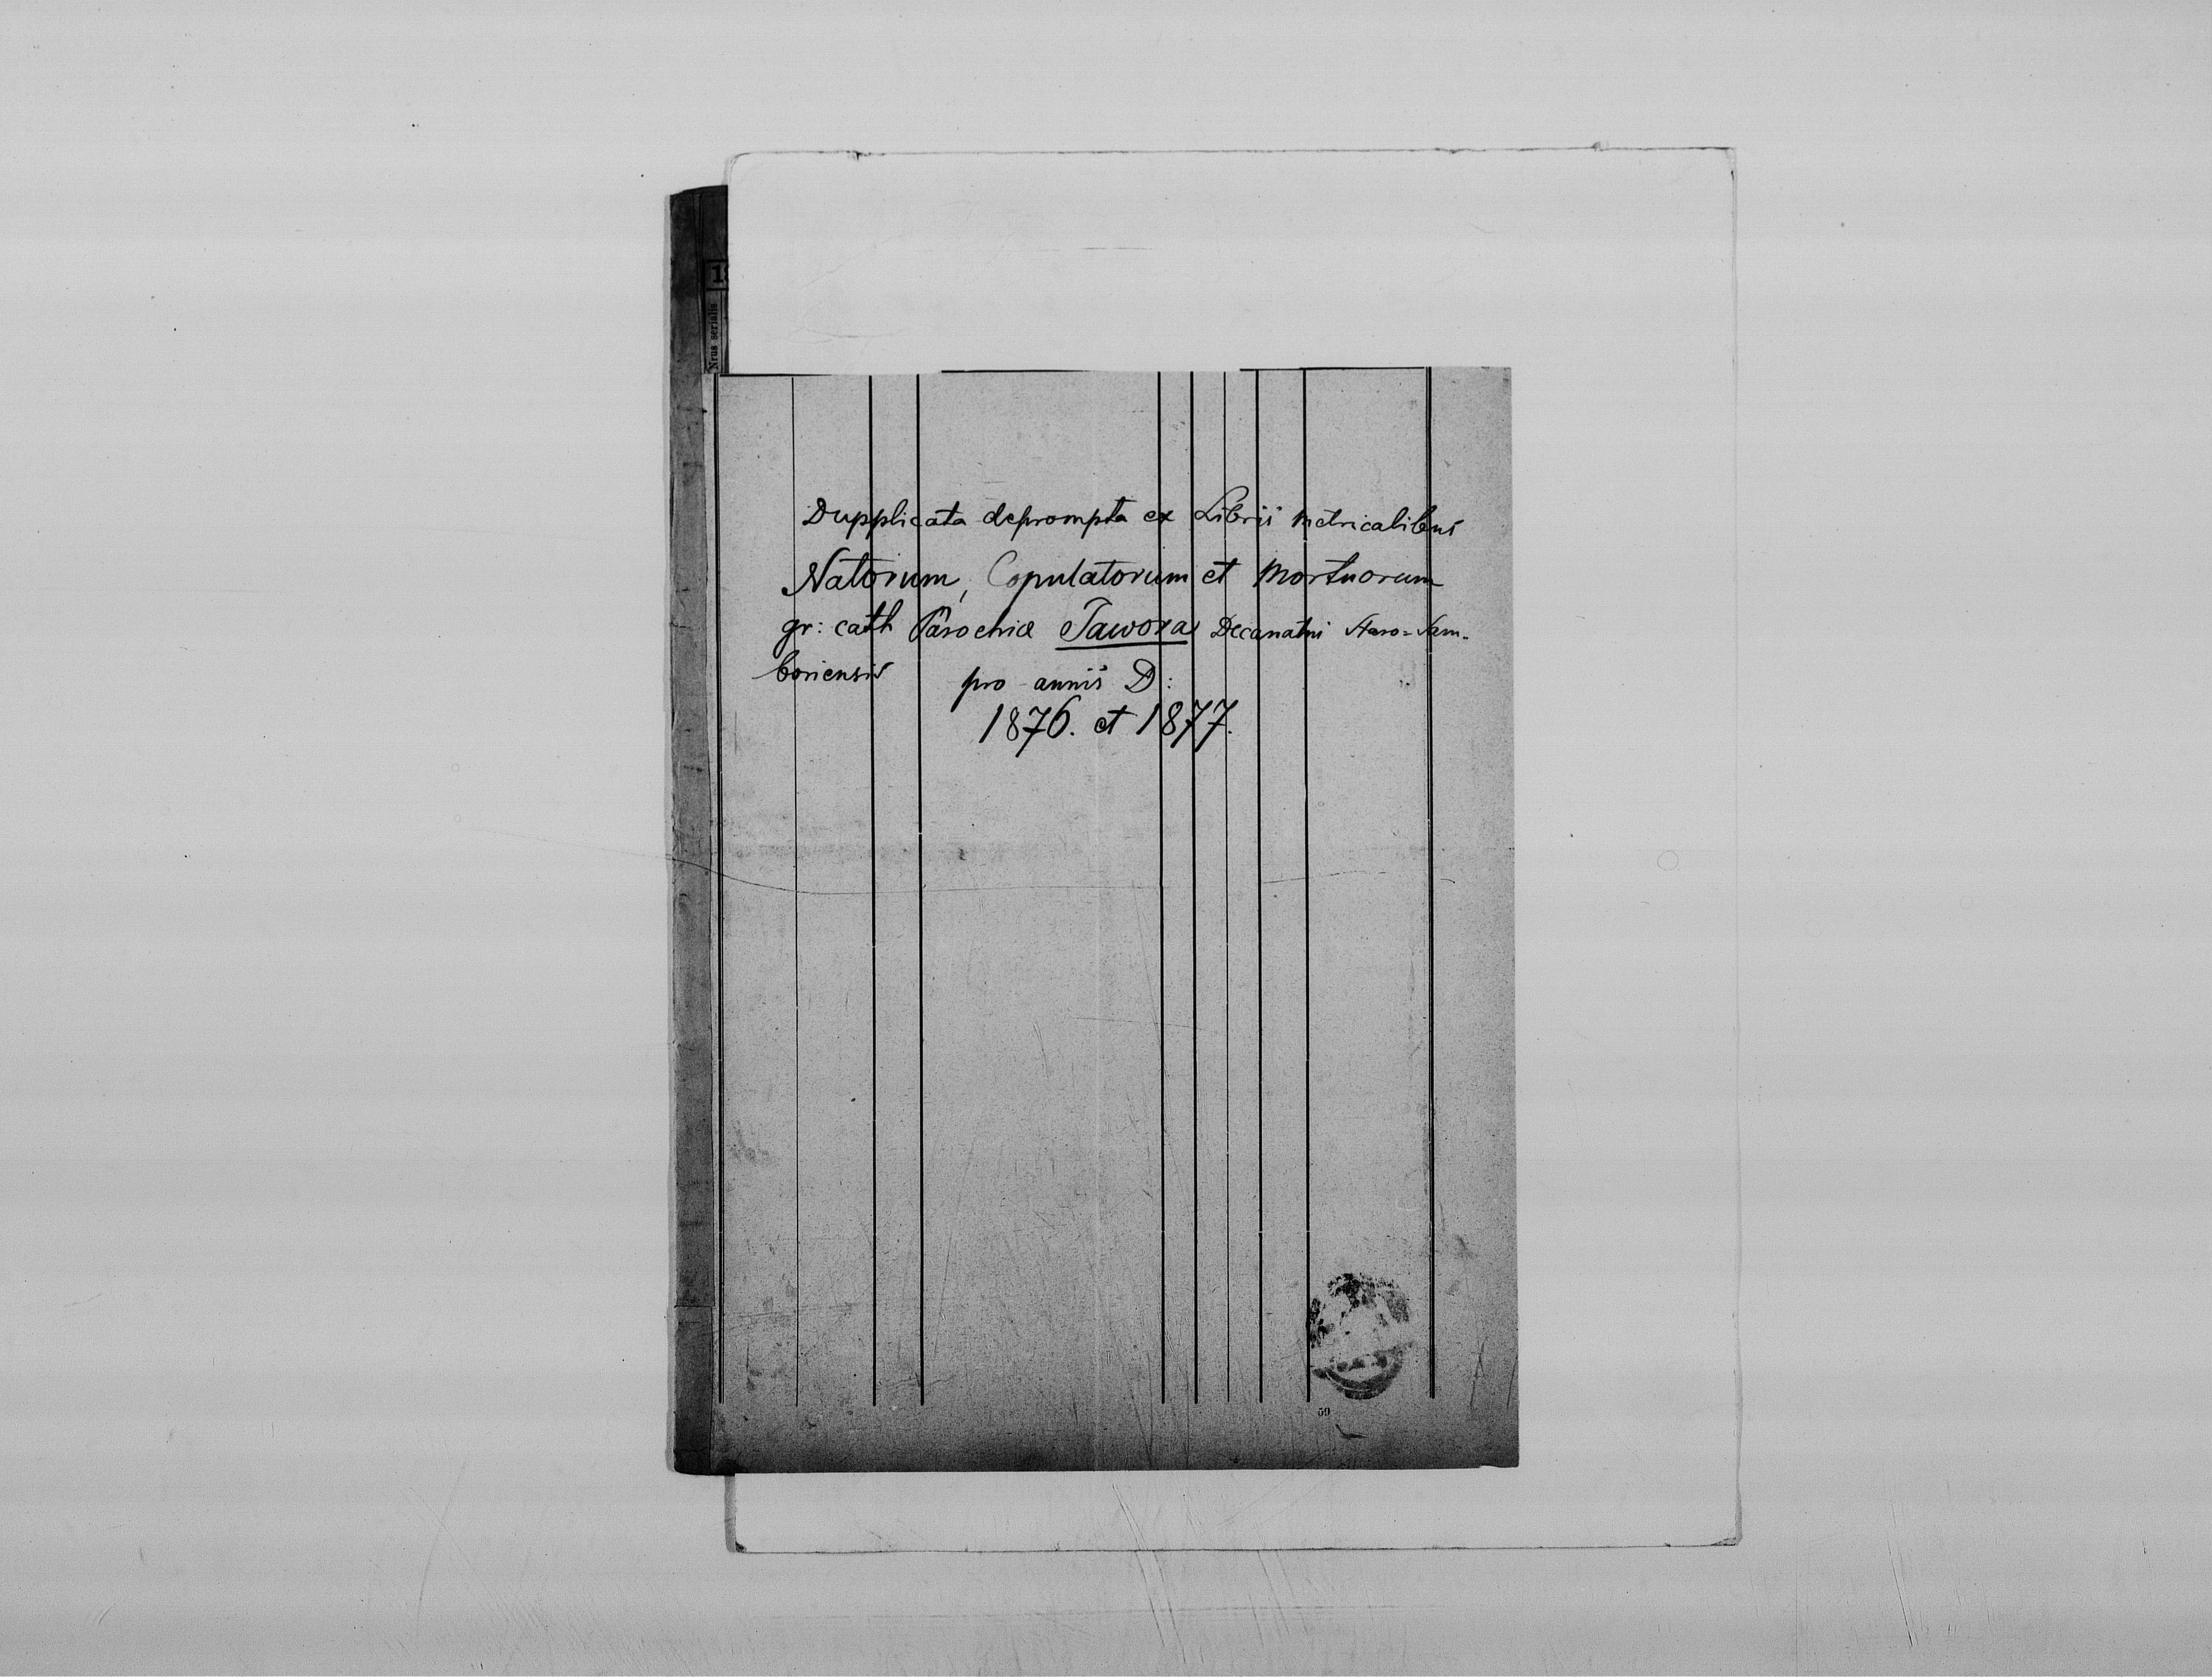 1
Nrus serialis
Dupplicata deprompta ex Libris metricalibus
Natorum, Copulatorum et Mortuorum
gr: cath Parochiæ Jawora Decanatus Staro=Sam-
boriensis
pro annis D:
1876. et 1877.
59